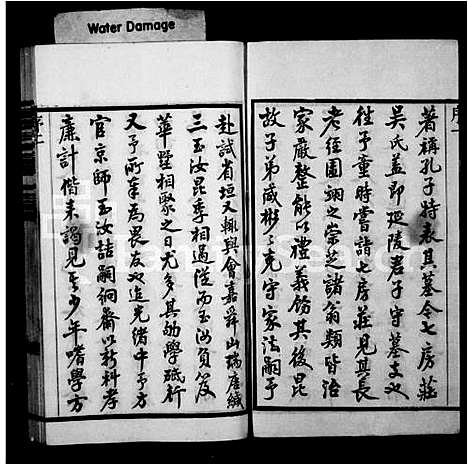 Water Damage
序一
著稱孔子特表其墓今七房莊
吳氏蓋即延陵君子守墓支也
往予童時嘗詣七房莊見其長
老徑園翊之崇芝諸翁類皆治
家嚴整能以禮義飭其後昆
故子弟咸彬彬克守家法嗣予
赴試省垣又輒與會嘉舜山瑞唐緘
三玉汝昆季相過從而玉汝負笈
華墅相聚之日尤多其劬學砥行
又予所奉為畏友也迨光緒中予方
官京師玉汝詰嗣絅齋以新科孝
廉計偕來謁見其少年嗜學方
序二
FamilySearch